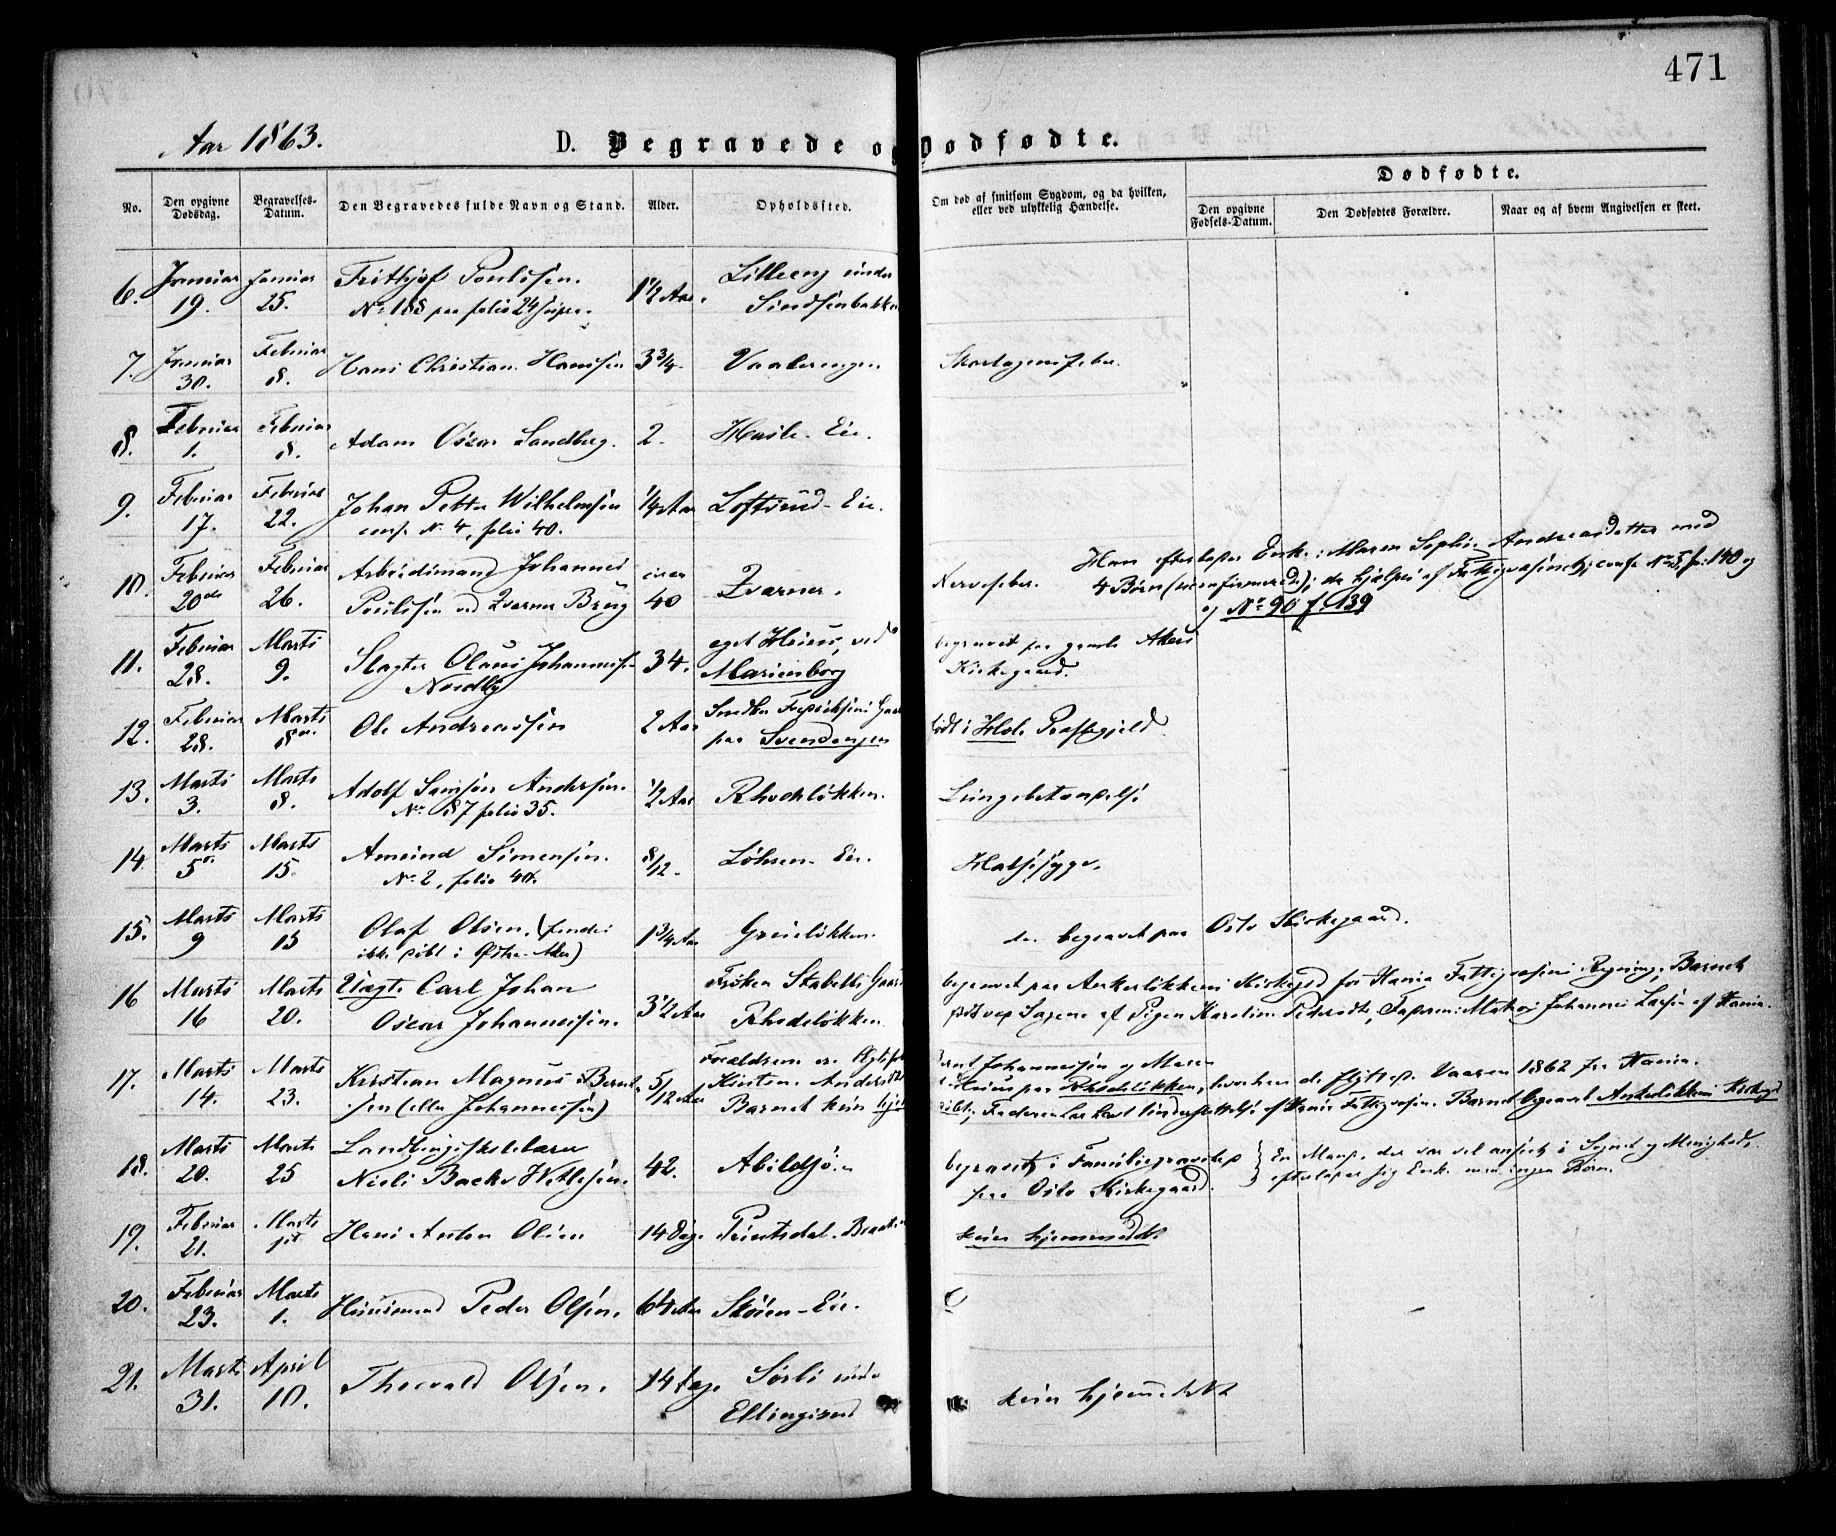 471
Aar 1863.
D. Begravede og Dødfødte.
Dødfødte.
No.
Den opgivne Dødsdag.
Begravelses-Datum.
Den Begravedes fulde Navn og Stand.
Alder.
Opholdssted.
Om død af smitsom Sygdom, og da hvilken,
eller ved ulykkelig Hændelse.
Den opgivne Fødsels-Datum.
Den Dødfødtes Forældre.
Naar og af hvem Angivelsen er skeet.
6. Januar 19. Januar 25. Frithjof Poulsen. 1 1/2 Aar. Lilleeng under
No 188 paa folio 24 Sinsenbakken
7. Januar 30. Februar 8. Hans Christian Hanssen 3 3/4 Vaalerengen. Skarlagensfeber.
8. Februar 1. Februar 8. Adam Oscar Sandberg. 2. Hasle-Eie.
9. Februar 17. Februar 22. Johan Petter Wilhelmsen 1/4 Aar Loftsrud-Eie.
conf. No 4, folio 40.
10. Februar 20de Februar 26. Arbeidsmand Johannes Poulsen ved Kværner Brug 40 Kværner. Nervefeber.
Han efterlader Enke: Maren Sophie Andreasdatter med
4 Børn
No 90 f. 139
11. Februar 28. Marts 9. Slagter Olaus Johannessen Nordby 34. eget Huus, ved Marienborg begravet paa gamle Akers Kirkegaard.
12. Februar 28. Marts 8. Ole Andreassen 2 Aar paa Svendengen født i Hole Præstegjeld.
13. Marts 3. Marts 8. Adolf Samson Andersen. 1/2 Aar Rhodeløkken. Lungebetændelse
No 87 folio 35.
14. Marts 5. Marts 15. Amund Simensen. 8/12. Løhren-Eie. Halssyge.
No 2, folio 40.
15. Marts 9 Marts 15 Olaf Olsen. (findes 1 3/4 Aar Grünløkken. begravet paa Oslo Kirkegaard.
ikke døbt i Østre Aker)
16 Marts 16 Marts 20. Uægte Carl Johan Oscar Johannessen. 3 1/2 Aar Frøken Stabells Gaard Rhodeløkken.
begravet paa Ankerløkkens Kirkegaard for Xania Fattigvæsens Regning. Barnet
født ved Sagene af Pigen Karoline Pedersdtr, Johannes Larsen af Xania.
17. Marts 14. Marts 23. Kristian Magnus Berntsen (eller Johannessen) 5/12 Aar Forældrene er Bernt Johannessen og Maren
Kirstine Andersdtr Huus paa Rhodeløkken, hvorhen de flyttede Vaaren 1862 fra Xania.
Barnet kun hjemmedøbt, Faderen har havt Understøttelse af Xanias Fattigvæsen. Barnet begravet Ankerløkkens Kirkegd
18. Marts 20. Marts 25 Landbrugsskolelærer Niels Backe Wetlesen. 42. Abildsø. begravet i Familiegravsted paa Oslo Kirkegaard.
En Mand, der var vel anseet i Sognet og Menighed,
efterlader sig Enke men ingen Børn.
19. Februar 21. Marts 1st Hans Anton Olsen 14 Dage Printsdal. kun hjemmedøbt.
20. Februar 23. Marts 1. Huusmand Peder Olsen. 64 Aar Skøien-Eie.
21. Marts 31. April 10. Thorvald Olsen. 14 Dage Sørli under Ellingsrud kun hjemmedøbt